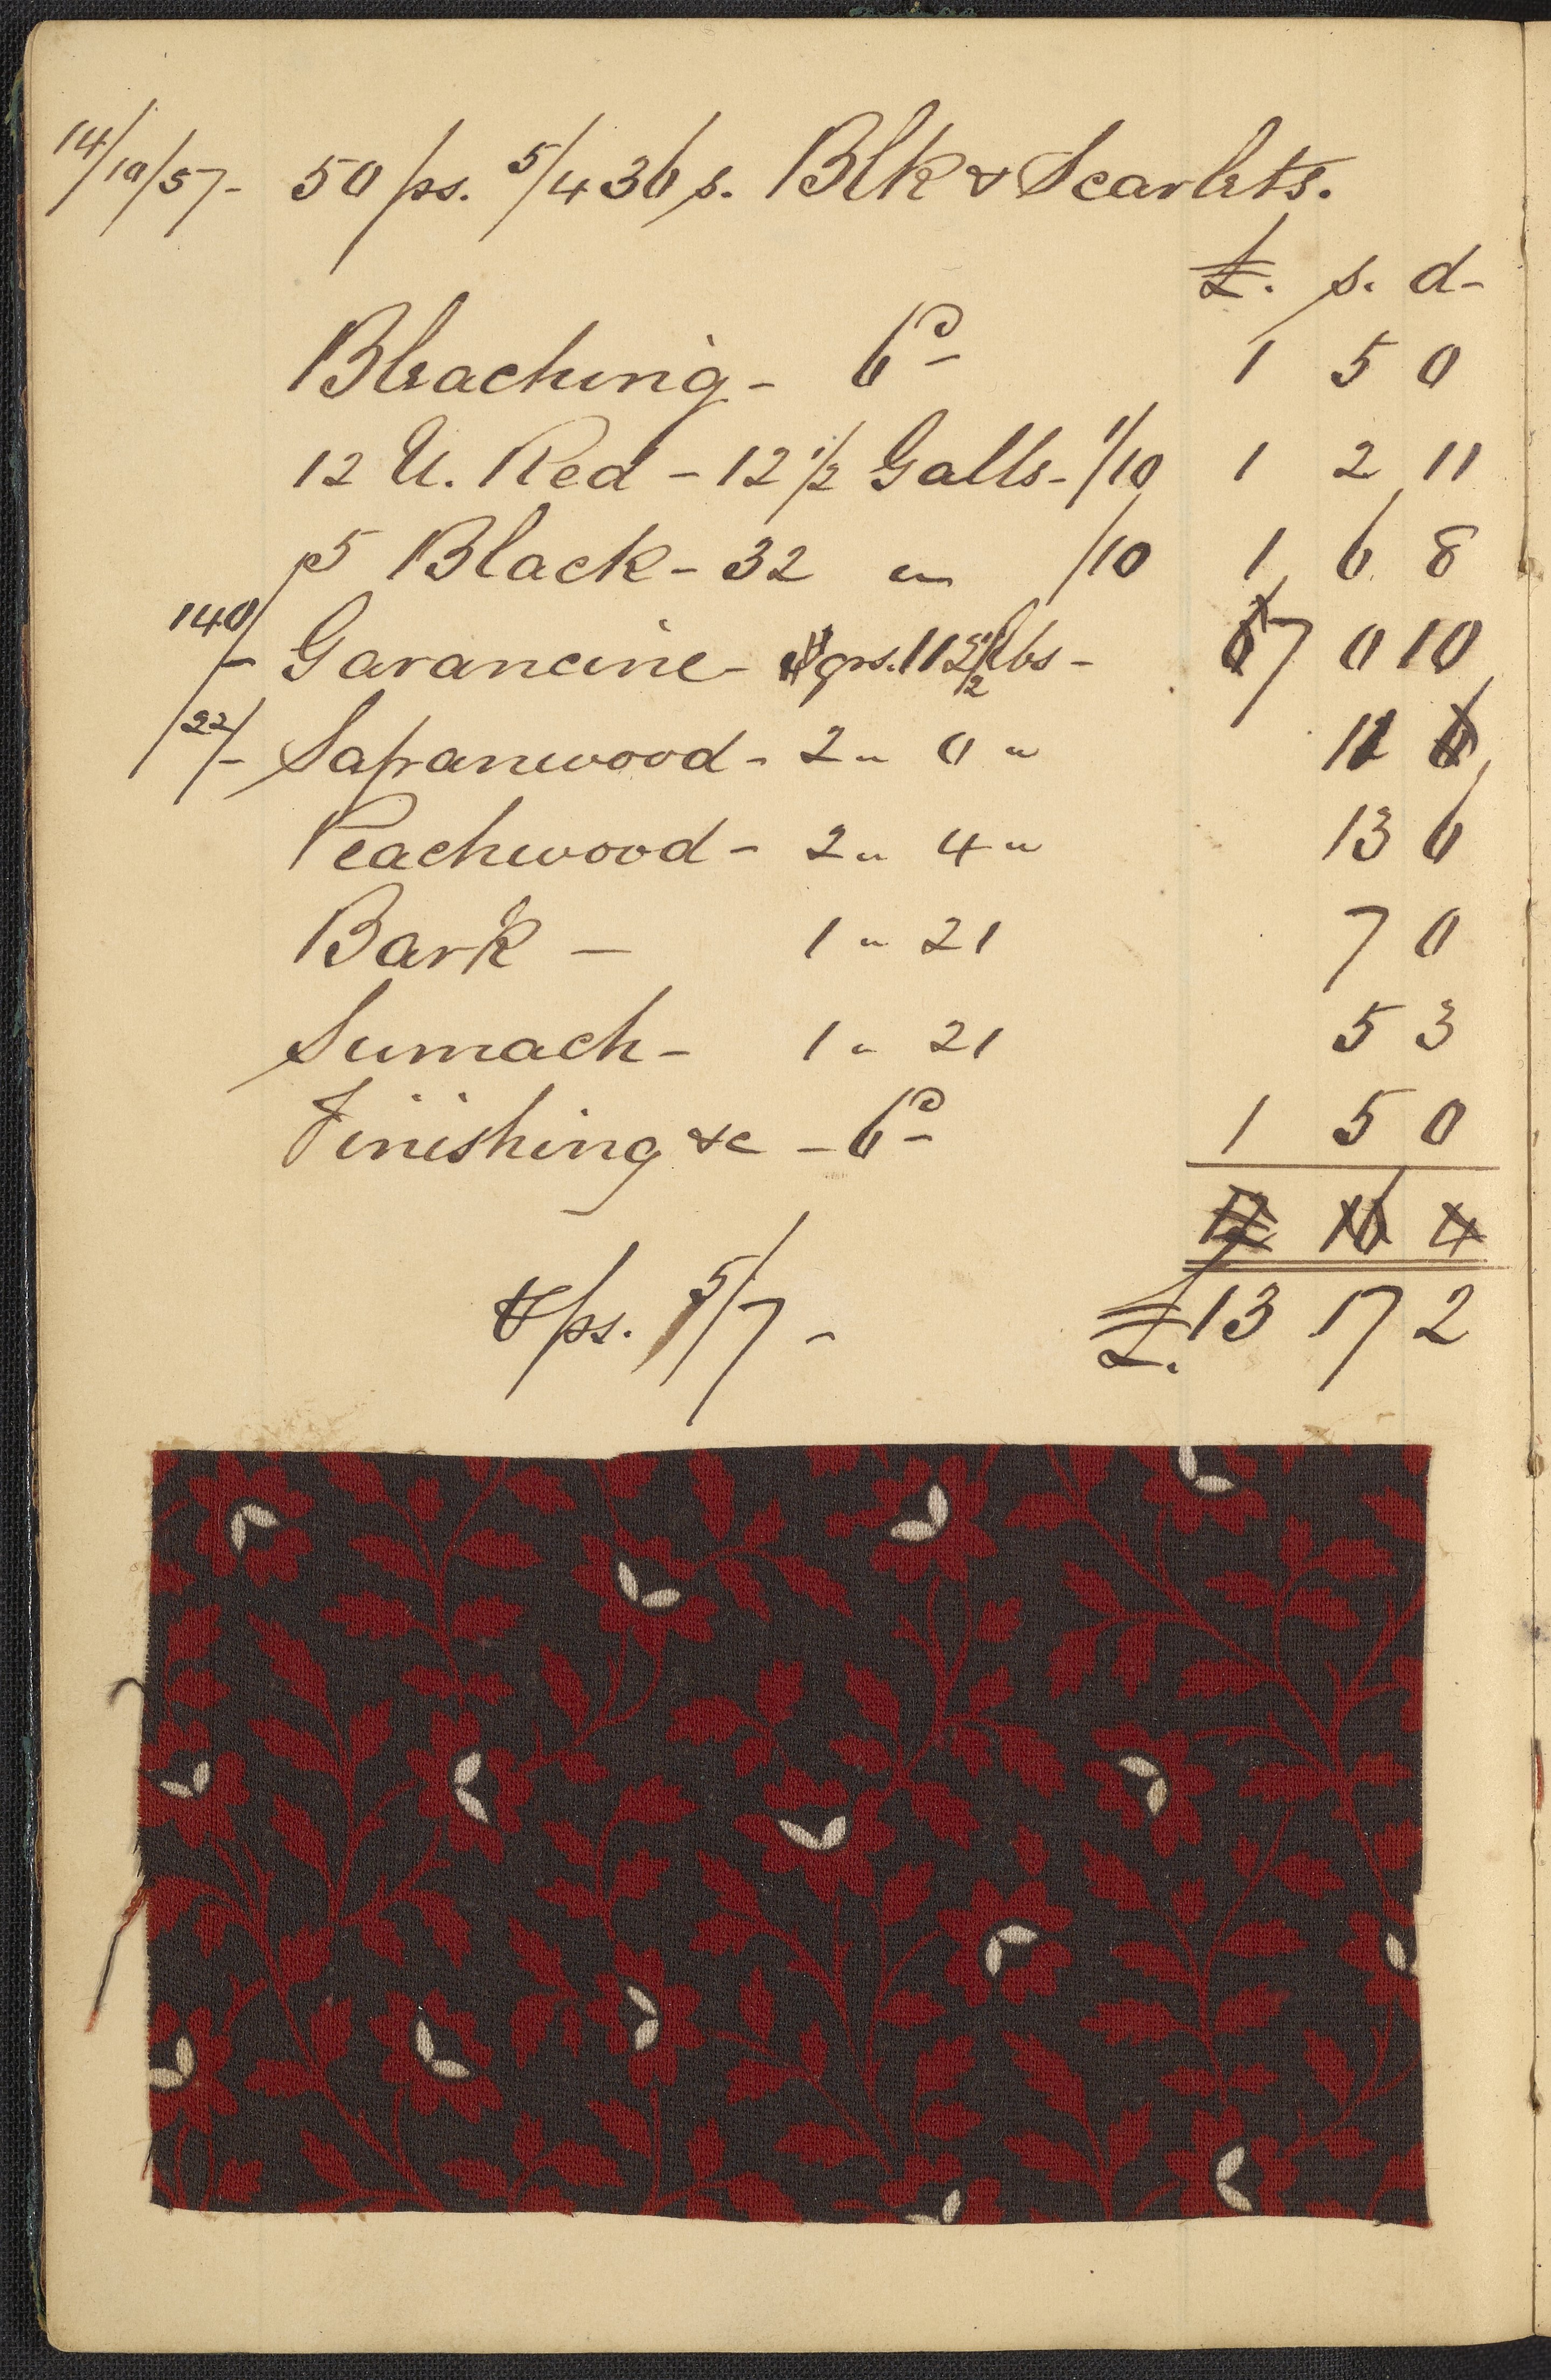 14/10/57- 50 ps. 5/4 36 s. Blk & Scarlets.
£. s. d-
Bleaching - 6d- 1 5 0
12 U. Red - 12 1/2 Galls - 1/10 1 2 11
p5 Black - 32 " /10 1 6 8
140/- Garancine - qrs. 112 1/2 lbs - 7 0 10
22/- Sapanwood - 2 " 0 " 11
Peachwood - 2 " 4 " 13 6
Bark - 1 " 21 7 0
Sumach - 1 " 21 5 3
Finishing &c - 6d- 1 5 0
12 16 4
ps. 5/7 - £. 13 17 2